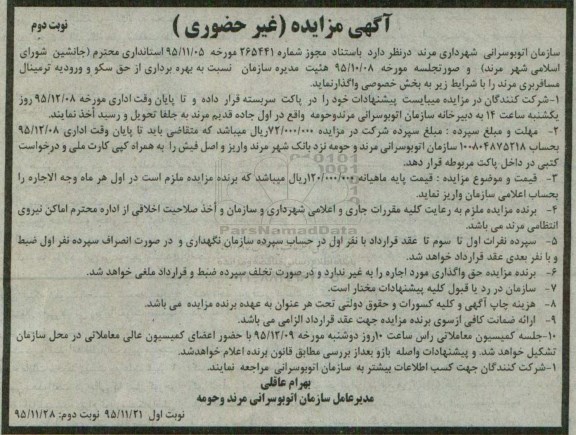 آگهی مزایده (غیر حضوری )
نوبت دوم
سازمان اتوبوسرانی شهرداری مرند درنظر دارد باستناد مجوز شماره ۲۶۵۴۴۱ مورخه ۹۵/۱۱/۰۵ استانداری محترم (جانشین شورای
اسلامی شهر مرند) و صورتجلسه مورخه ۹۵/۱۰/۰۸ هئیت مدیره سازمان نسبت به بهره برداری از حق سکو و ورودیه ترمینال
مسافربری مرند را با شرایط زیر به بخش خصوصی واگذارنماید.
۱-شرکت کنندگان در مزایده میبایست پیشنهادات خود را در پاکت سربسته قرار داده و تا پایان وقت اداری مورخه ۹۵/۱۲/۰۸ روز
یکشنبه ساعت ۱۴ به دبیرخانه سازمان اتوبوسرانی مرندوحومه واقع در اول جاده قدیم مرند به جلفا تحویل و رسید أخذ نمایند.
۲- مهلت و مبلغ سپرده : مبلغ سپرده شرکت در مزایده ۷۲/۰۰۰/۰۰۰ریال میباشد که متقاضی باید تا پایان وقت اداری ۹۵/۱۲/۰۸
بحساب ۱۰۰۸۰۴۸۷۵۲۱۸ سازمان اتوبوسرانی مرند و حومه نزد بانک شهر مرند واریز و اصل فیش را به همراه کپی کارت ملی و درخواست
کتبی در داخل پاکت مربوطه قرار دهد.
۳- قیمت و موضوع مزایده : قیمت پایه ماهیانه ۱۲۰/۰۰۰/۰۰۰ریال میباشد که برنده مزایده ملزم است در اول هر ماه وجه الاجاره را
بحساب اعلامی سازمان واریز نماید.
۴- برنده مزایده ملزم به رعایت کلیه مقررات جاری و اعلامی شهرداری و سازمان و أخذ صلاحیت اخلاقی از اداره محترم اماکن نیروی
انتظامی مرند می باشد.
۵- سپرده نفرات اول تا سوم تا عقد قرارداد با نفر اول در حساب سپرده سازمان نگهداری و در صورت انصراف سپرده نفر اول ضبط
و با نفر بعدی عقد قرارداد خواهد شد.
۶- برنده مزایده حق واگذاری مورد اجاره را به غیر ندارد و در صورت تخلف سپرده ضبط و قرارداد ملغی خواهد شد.
۷- سازمان در رد یا قبول کلیه پیشنهادات مختار است.
۸- هزینه چاپ آگهی و کلیه کسورات و حقوق دولتی تحت هر عنوان به عهده برنده مزایده می باشد.
۹- ارائه ضمانت کافی ازسوی برنده مزایده جهت عقد قرارداد الزامی می باشد.
۱۰-جلسه کمیسیون معاملاتی راس ساعت ۱۰روز دوشنبه مورخه ۹۵/۱۲/۰۹ با حضور اعضای کمیسیون عالی معاملاتی در محل سازمان
تشکیل خواهد شد. و پیشنهادات واصله بازو بعداز بررسی مطابق قانون برنده اعلام خواهدشد.
۱-شرکت کنندگان جهت کسب اطلاعات بیشتر به سازمان اتوبوسرانی مراجعه نمایند.
بهرام عاقلی
مدیرعامل سازمان اتوبوسرانی مرند وحومه
نوبت اول ۹۵/۱۱/۲۱ نوبت دوم: ۹۵/۱۱/۲۸
ParsNamadData